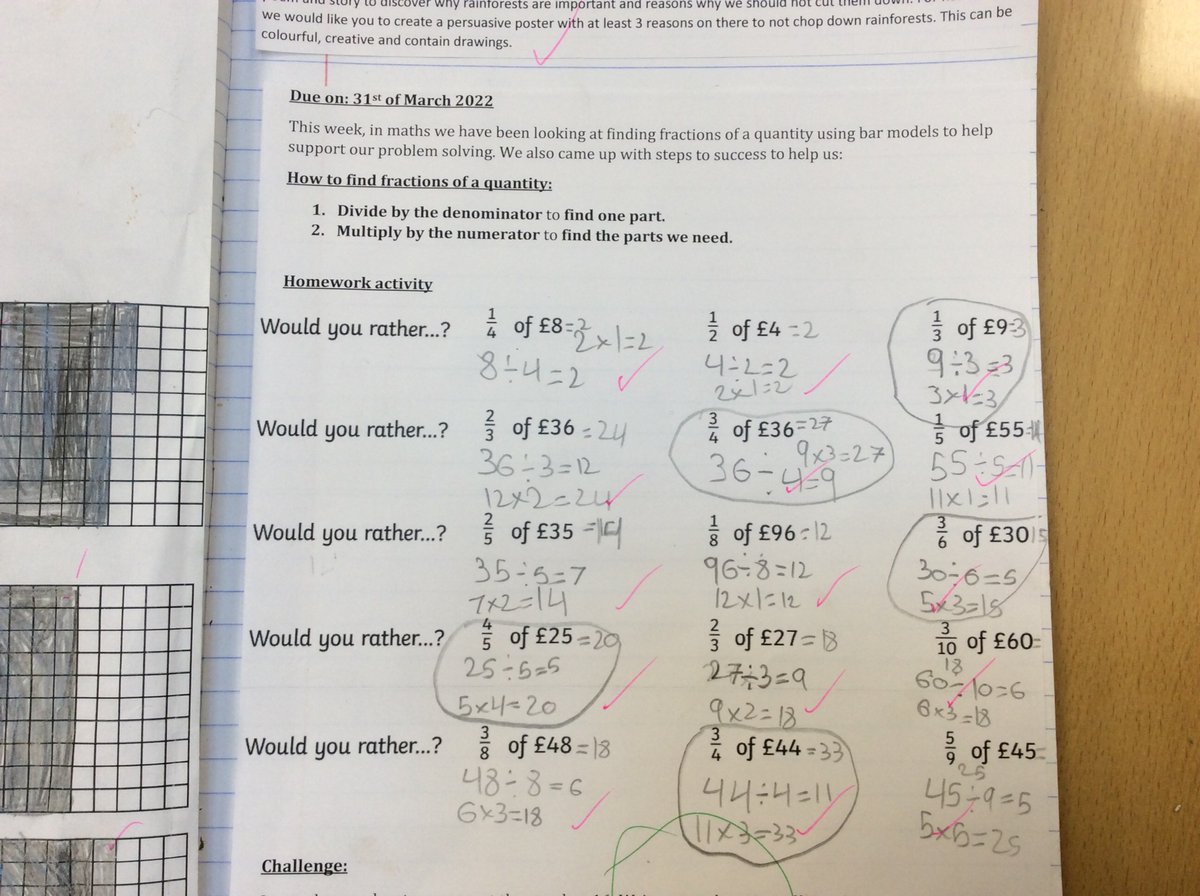 story to discover why rainforests are important and reasons why we should not cut them down.
we would like you to create a persuasive poster with at least 3 reasons on there to not chop down rainforests. This can be
colourful, creative and contain drawings.
Due on: 31st of March 2022
This week, in maths we have been looking at finding fractions of a quantity using bar models to help
support our problem solving. We also came up with steps to success to help us:
How to find fractions of a quantity:
1. Divide by the denominator to find one part.
2. Multiply by the numerator to find the parts we need.
Homework activity
Would you rather...? 1/4 of £8=2 1/2 of £4 =2 1/3 of £9=3
2x1=2
8÷4=2 4÷2=2 9÷3=3
2x1=2 3x1=3
Would you rather...? 2/3 of £36 =24 3/4 of £36=27 1/5 of £55=11
9x3=27
36÷3=12 36÷4=9 55÷5=11
12x2=24 11x1=11
Would you rather...? 2/5 of £35 =14 1/8 of £96=12 3/6 of £30 15
35÷5=7 96÷8=12 30÷6=5
7x2=14 12x1=12 5x3=15
Would you rather...? 4/5 of £25=20 2/3 of £27=18 3/10 of £60=
18
25÷5=5 27÷3=9 60÷10=6
5x4=20 9x2=18 6x3=18
Would you rather...? 3/8 of £48=18 3/4 of £44=33 5/9 of £45=
25
48÷8=6 44÷4=11 45÷9=5
6x3=18 11x3=33 5x5=25
Challenge: